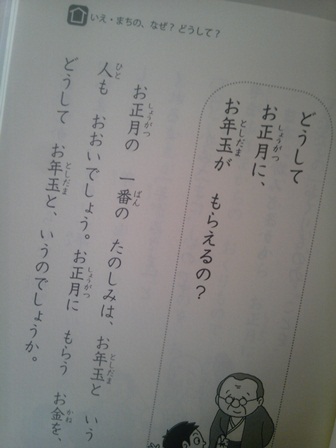 いえ・まちの、なぜ？どうして？
どうして
お正月に、
お年玉が もらえるの？
お正月の 一番の たのしみは、お年玉と いう
人も おおいでしょう。お正月に もらう お金を、
どうして お年玉と、いうのでしょうか。